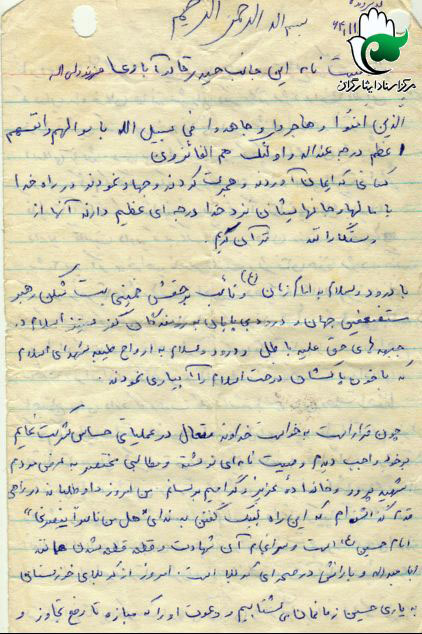 بسم الله الرحمن الرحیم
مرکز اسناد ایثارگران
وصیت نامه این جانب حیدر قادرآبادی فرزند
الذین امنوا و هاجروا و جاهدوا فی سبیل الله باموالهم وانفسهم
اعظم درجه عندالله و اولئک هم الفائزون
کسانی که ایمان آوردند و هجرت کردند و جهاد نمودند در راه خدا
با مالها و جانهایشان نزد خدا درجه ای عظیم دارند آنها از
رستگارانند قرآن کریم.
با درود و سلام به امام زمان (عج) و نائب برحقش خمینی بت شکن رهبر
مستضعفین جهان و درودی بی پایان به رزمندگان کفر ستیز اسلام در
جبهه های حق علیه باطل و درود و سلام به ارواح طیبه شهدای اسلام
که با خون پاکشان درخت اسلام را آبیاری نمودند.
چون قرار است به خواست خداوند متعال در عملیاتی حساس شرکت نمایم
بر خود واجب دیدم وصیت نامه ای نوشته و مطالبی مختصر به عرض مردم
شهید پرور و خانواده عزیز و گرامیم برسانم. من امروز داوطلبانه در راهی
قدم گذاشته ام که این راه لبیک گفتن به ندای "هل من ناصر ینصرنی"
امام حسین (ع) است و سرانجام آن شهادت و قطعه قطعه شدن مانند
ابا عبدالله و یارانش در صحرای کربلا است. امروز از کربلای خوزستان
به یاری حسین زمانمان بشتابیم و دعوت او را که مبارزه تا رفع تجاوز و